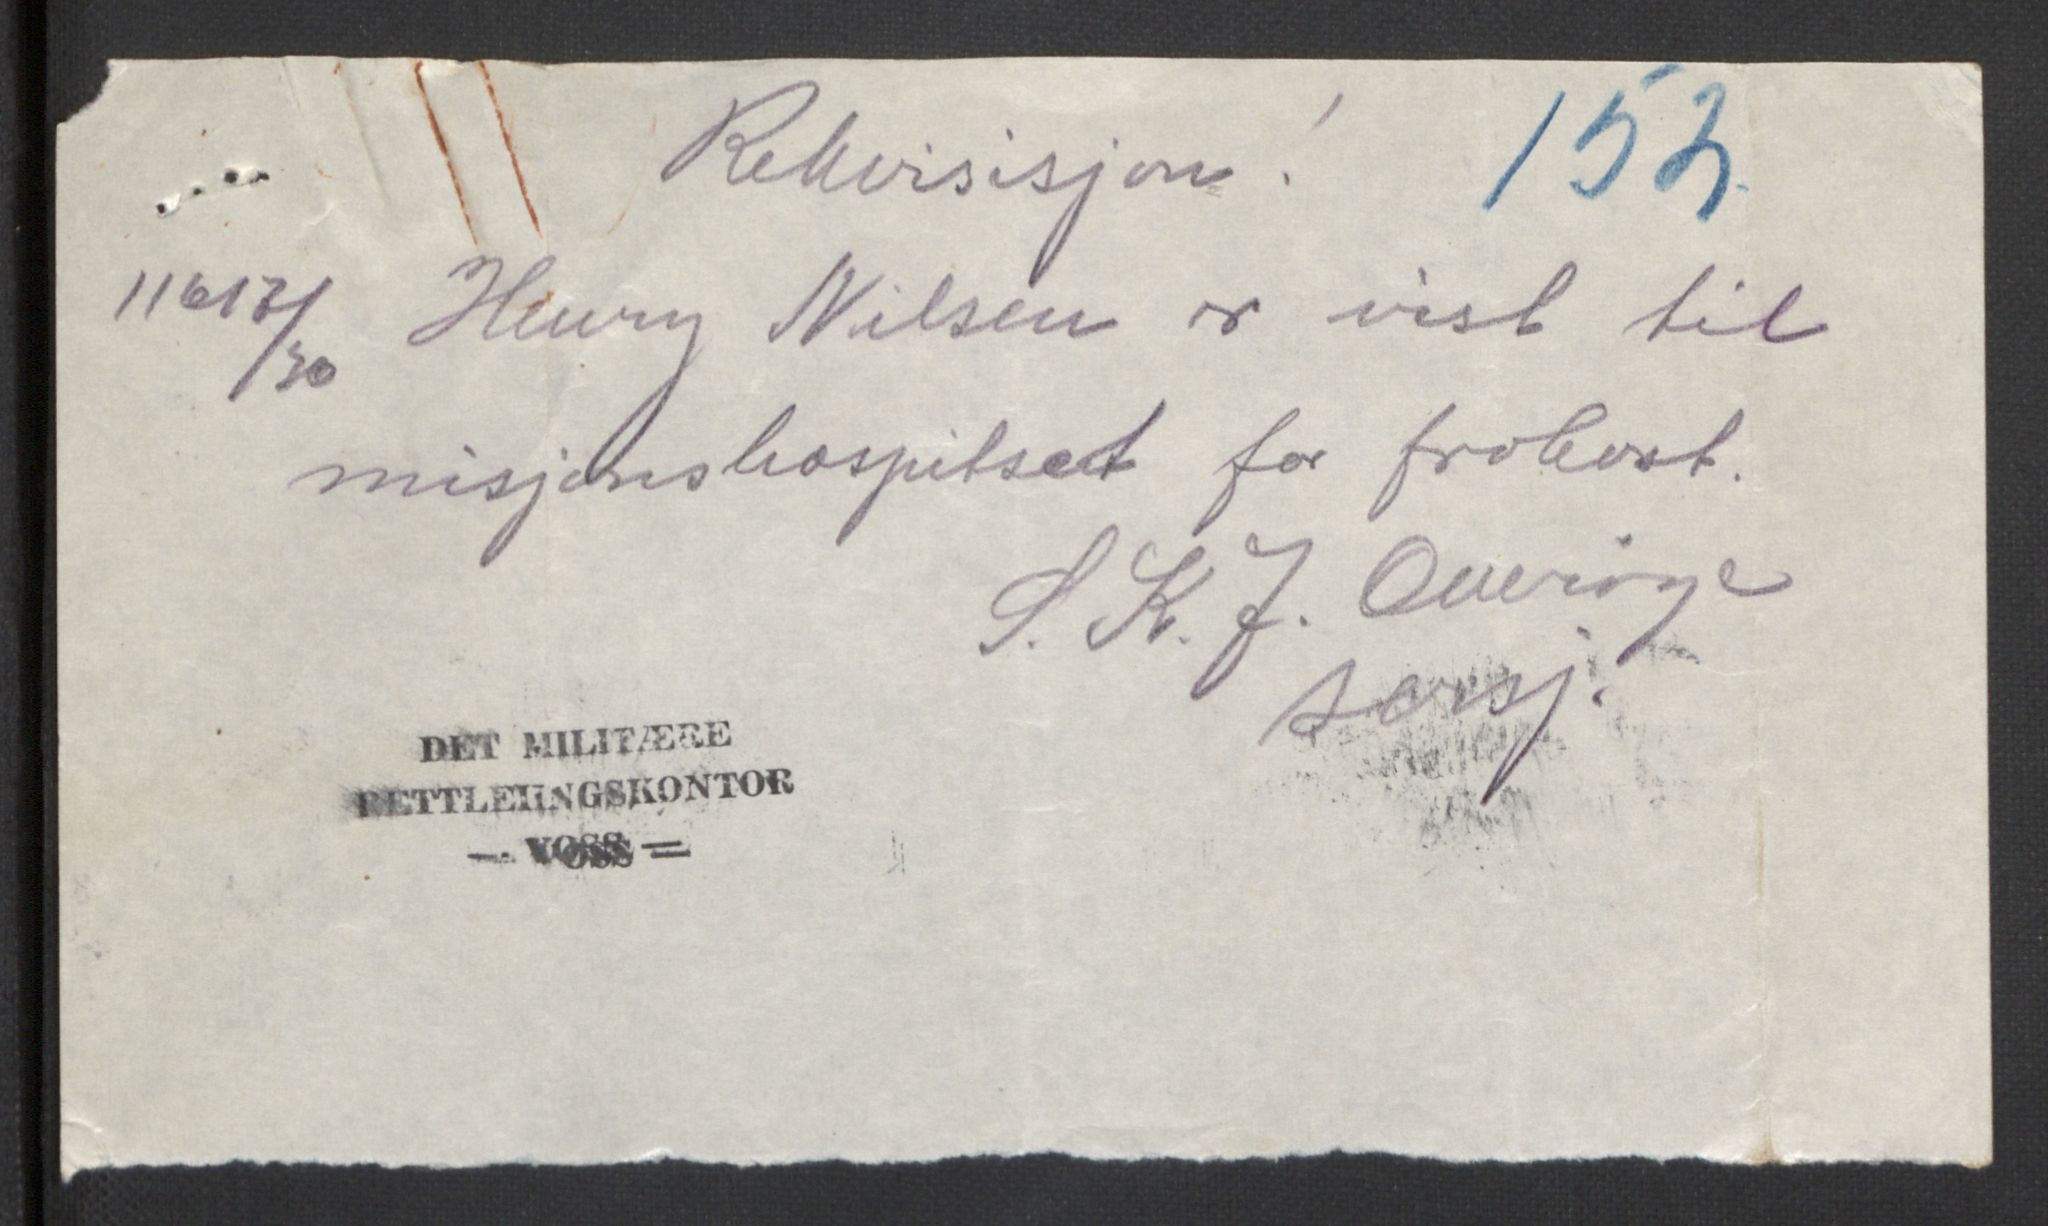 Rekvisisjon! 152
11612/30 Henry Nilsen er vist til
misjonshospitset for frokost.
S. K. J. Overøye
sersj.
DET MILITÆRE
RETTLEIINGSKONTOR
— VOSS —